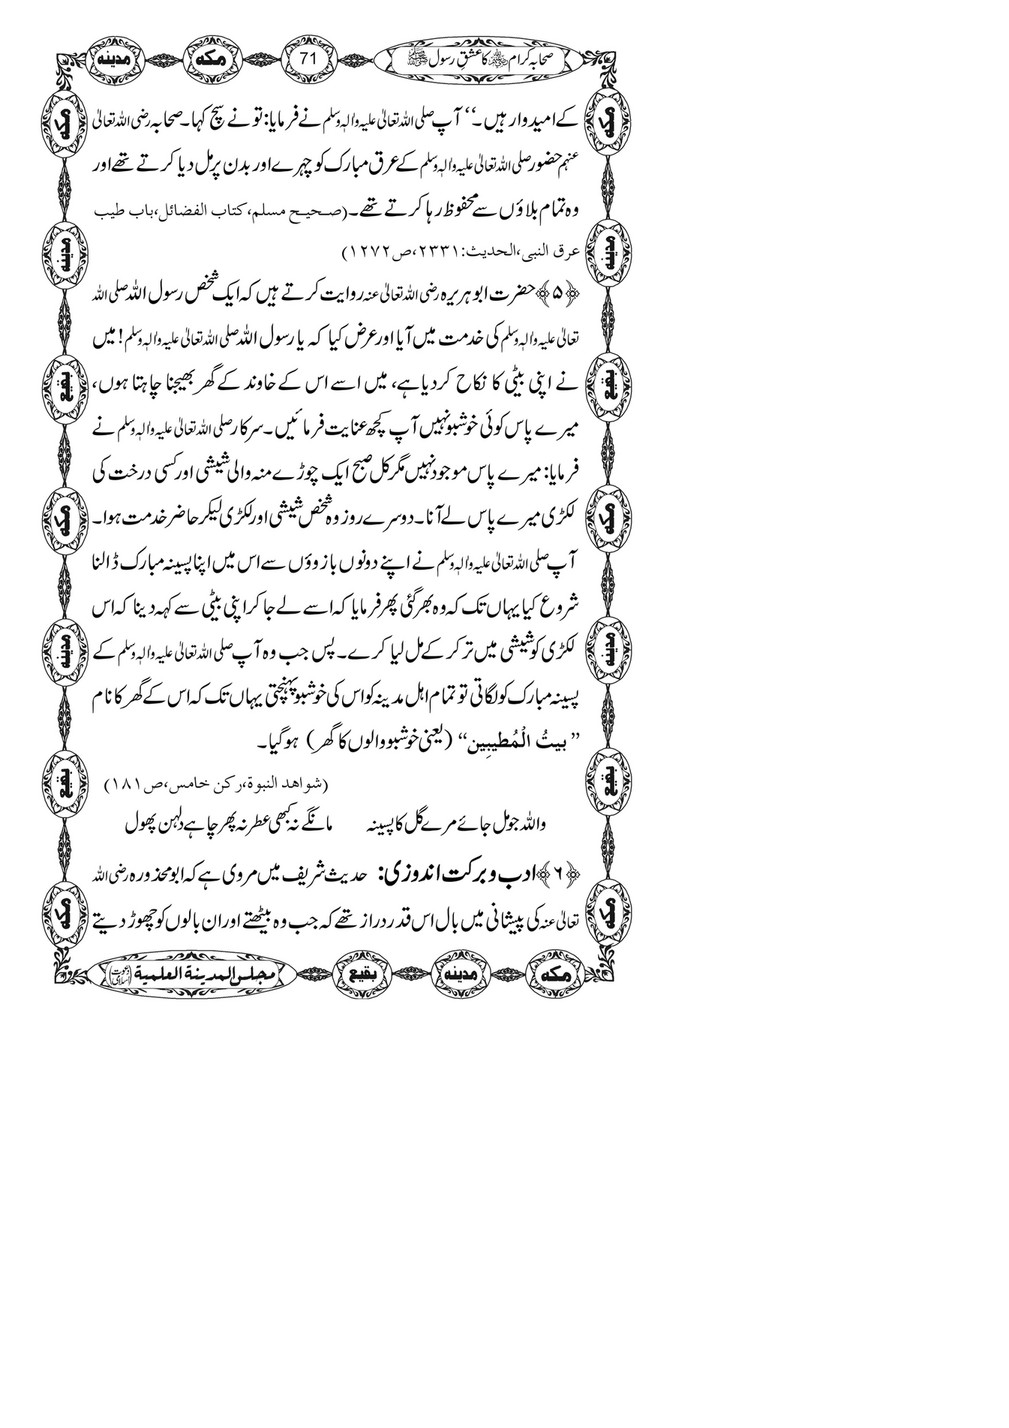 صحابہ کرام ﷺ کا عشق رسول ﷺ 71 مکہ مدینہ
کے امیدوار ہیں۔‘‘ آپ صلی اللہ تعالیٰ علیہ والہٖ وسلم نے فرمایا: تو نے سچ کہا۔ صحابہ رضی اللہ تعالیٰ
عنہم حضور صلی اللہ تعالیٰ علیہ والہٖ وسلم کے عرق مبارک کو چہرے اور بدن پر مل دیا کرتے تھے اور
وہ تمام بلاؤں سے محفوظ رہا کرتے تھے۔ (صحیح مسلم،کتاب الفضائل،باب طیب
عرق النبی،الحدیث:٢٣٣١،ص١٢٧٢)
﴿۵﴾ حضرت ابو ہریرہ رضی اللہ تعالیٰ عنہ روایت کرتے ہیں کہ ایک شخص رسول اللہ صلی اللہ
تعالیٰ علیہ والہٖ وسلم کی خدمت میں آیا اور عرض کیا کہ یا رسول اللہ صلی اللہ تعالیٰ علیہ والہٖ وسلم! میں
نے اپنی بیٹی کا نکاح کر دیا ہے، میں اسے اس کے خاوند کے گھر بھیجنا چاہتا ہوں،
میرے پاس کوئی خوشبو نہیں آپ کچھ عنایت فرمائیں۔ سرکار صلی اللہ تعالیٰ علیہ والہٖ وسلم نے
فرمایا: میرے پاس موجود نہیں مگر کل صبح ایک چوڑے منہ والی شیشی اور کسی درخت کی
لکڑی میرے پاس لے آنا۔ دوسرے روز وہ شخص شیشی اور لکڑی لیکر حاضر خدمت ہوا۔
آپ صلی اللہ تعالیٰ علیہ والہٖ وسلم نے اپنے دونوں بازوؤں سے اس میں اپنا پسینہ مبارک ڈالنا
شروع کیا یہاں تک کہ وہ بھر گئی پھر فرمایا کہ اسے لے جا کر اپنی بیٹی سے کہہ دینا کہ اس
لکڑی کو شیشی میں تر کر کے مل لیا کرے۔ پس جب وہ آپ صلی اللہ تعالیٰ علیہ والہٖ وسلم کے
پسینہ مبارک کو لگاتی تو تمام اہل مدینہ کو اس کی خوشبو پہنچتی یہاں تک کہ اس کے گھر کا نام
’’بیتُ الْمُطیبِین‘‘ (یعنی خوشبو والوں کا گھر) ہو گیا۔
(شواهد النبوة،رکن خامس،ص١٨١)
واللہ جو مل جائے مرے گل کا پسینہ مانگے نہ کبھی عطر نہ پھر چاہے دلہن پھول
﴿۶﴾ ادب و برکت اندوزی: حدیث شریف میں مروی ہے کہ ابو محذورہ رضی اللہ
تعالیٰ عنہ کی پیشانی میں بال اس قدر دراز تھے کہ جب وہ بیٹھتے اور ان بالوں کو چھوڑ دیتے
مکہ مدینہ بقیع مجلس المدینۃ العلمیۃ (دعوت اسلامی)
مکہ
مدینہ
بقیع
مکہ
مدینہ
بقیع
مکہ
مکہ
مدینہ
بقیع
مکہ
مدینہ
بقیع
مکہ